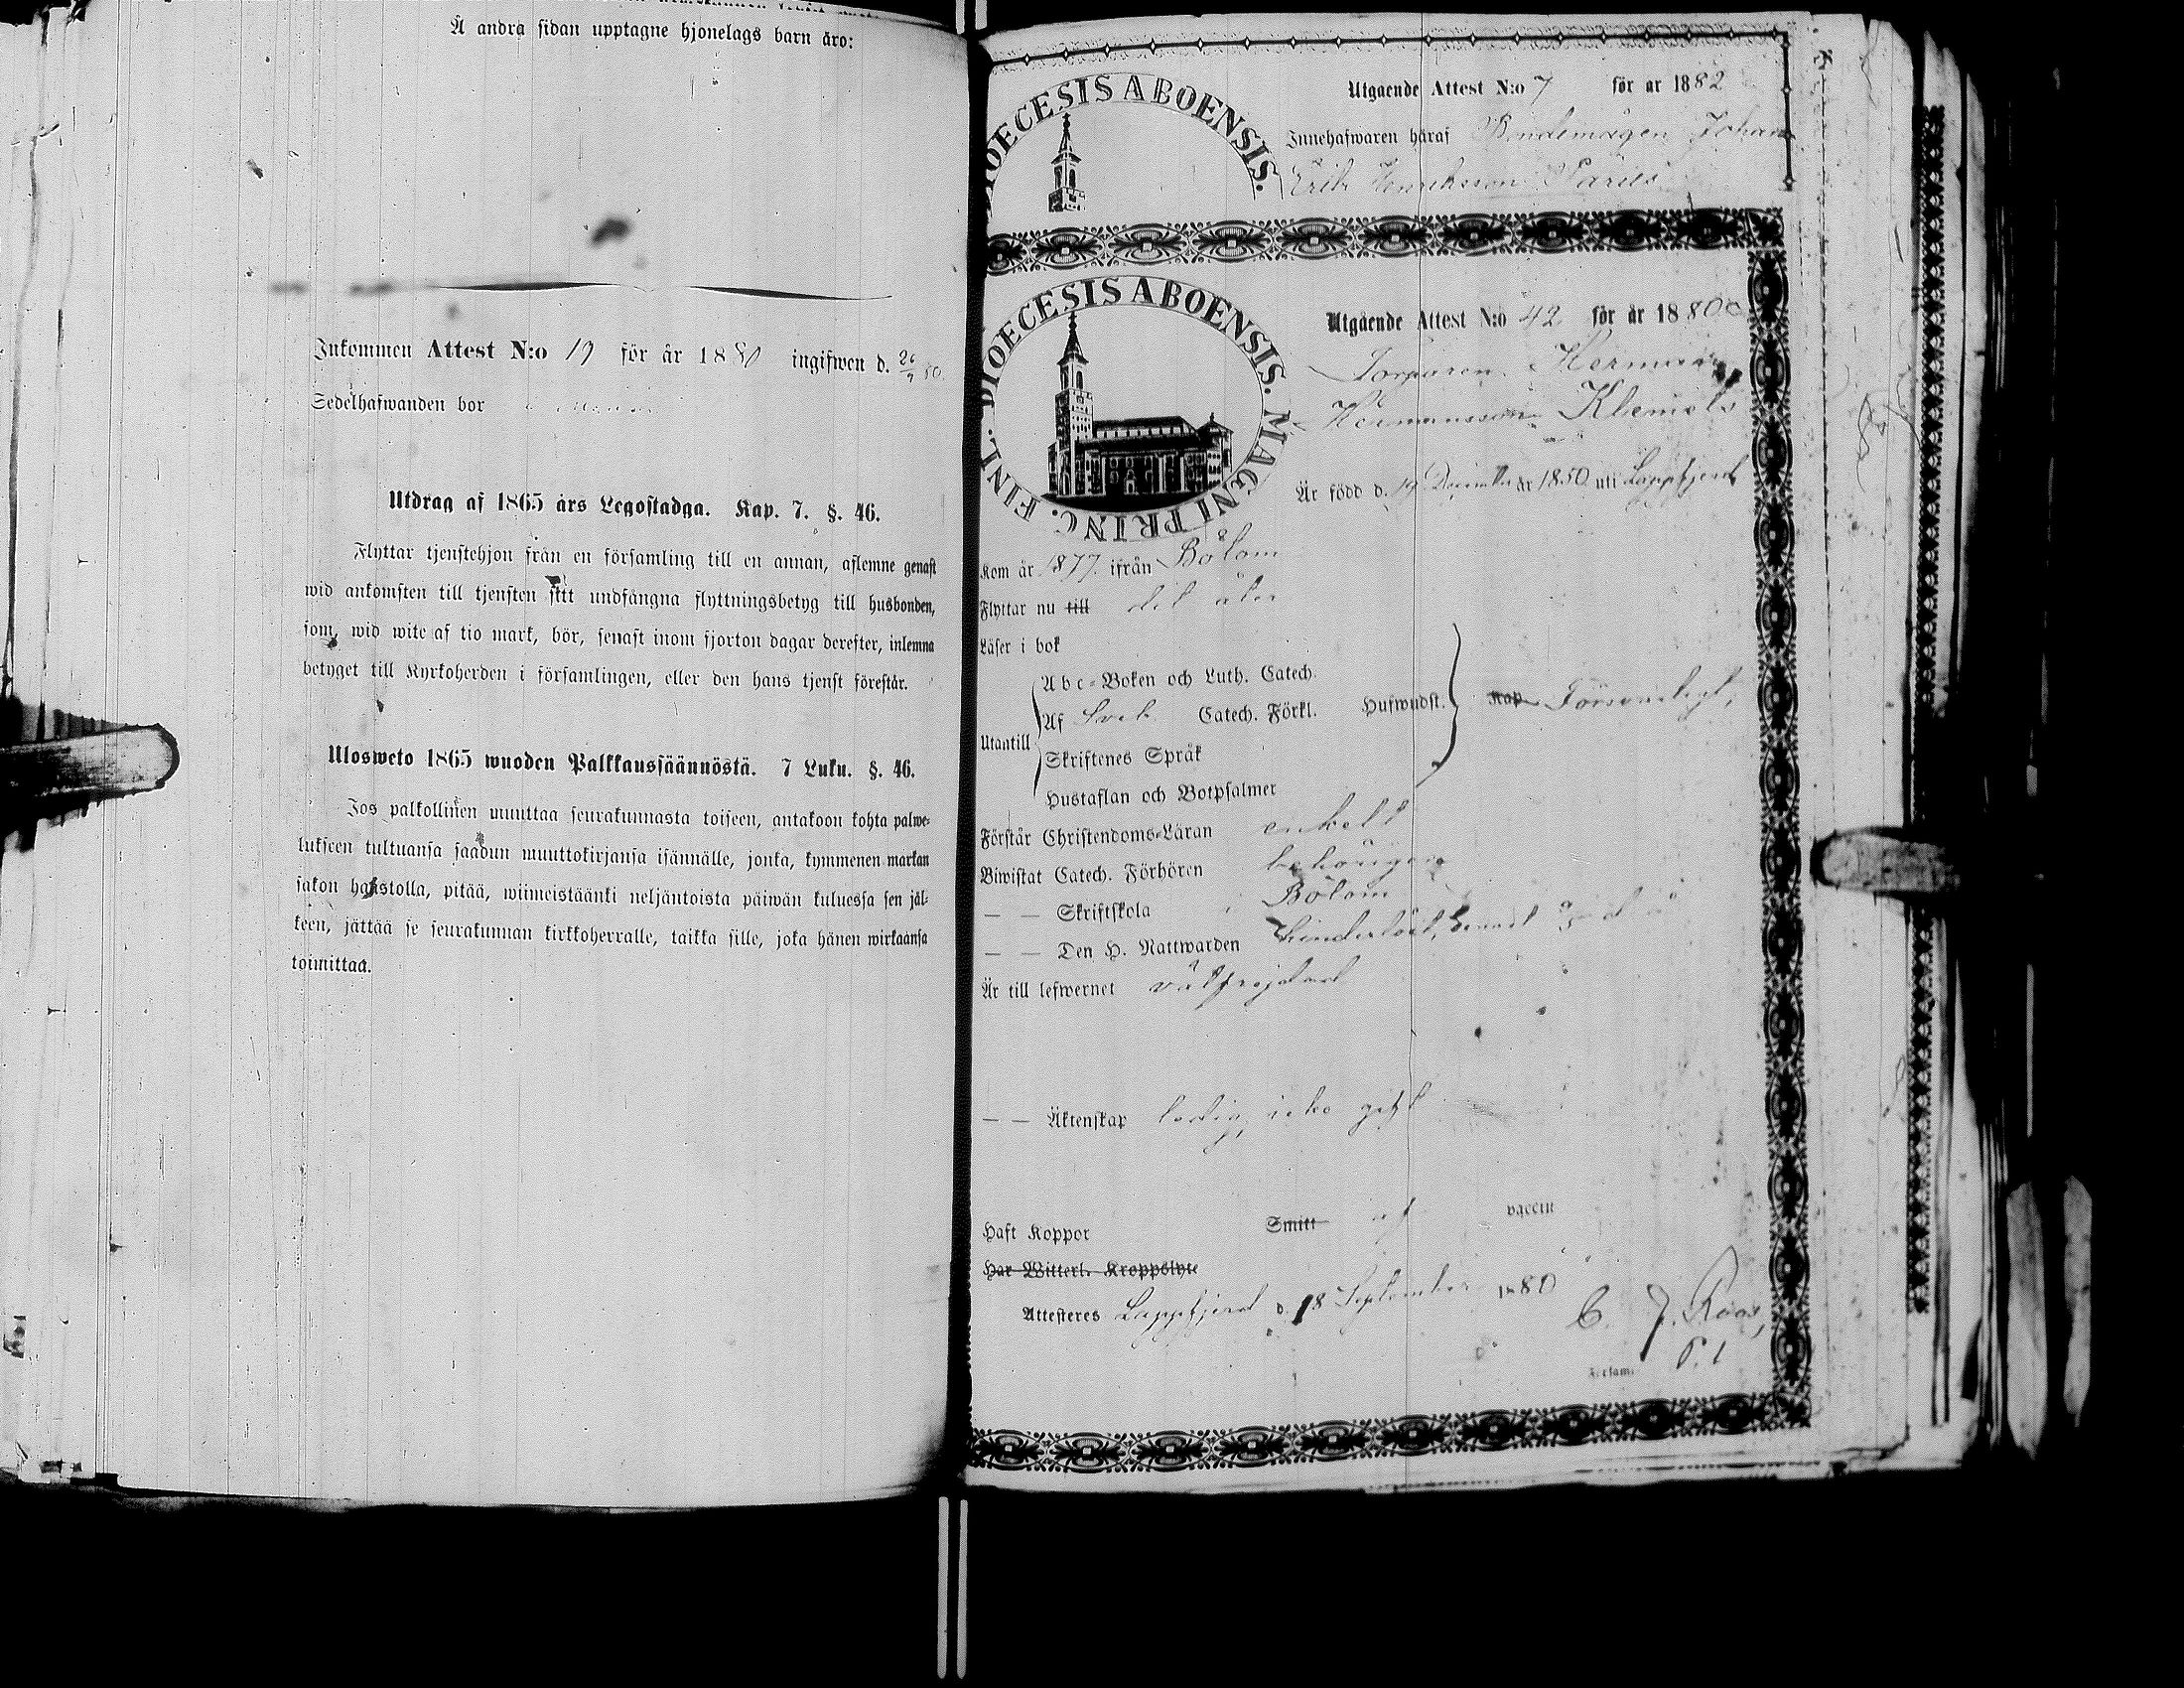 Å andra sidan upptagne hjonelags barn äro:
Inkommen Attest N:o 19 för år 1880 ingifwen d. 26/9 80.
Sedelhafwanden bor
Utdrag af 1865 års Legostadga. Kap. 7. §. 46.
Flyttar tjenstehjon från en församling till en annan, aflemne genast
wid ankomsten till tjensten sitt undfångna flyttningsbetyg till husbonden,
som, wid wite af tio mark, bör, senast inom fjorton dagar derefter, inlemna
betyget till Kyrkoherden i församlingen, eller den hans tjenst förestår.
Ulosweto 1865 wuoden Palkkaussäännöstä. 7 Luku. §. 46.
Jos palkollinen muuttaa seurakunnasta toiseen, antakoon kohta palwe-
lukseen tultuansa saadun muuttokirjansa isännälle, jonka, kymmenen markan
sakon haastolla, pitää, wiimeistäänki neljäntoista päiwän kuluessa sen jäl-
keen, jättää se seurakunnan kirkkoherralle, taikka sille, joka hänen wirkaansa
toimittaa.
DIOECESIS ABOENSIS.
Utgaende Attest N:o 7 för ar 1882
Innehafwaren häraf Bondemågen Johan
Erik Henriksson Päriis
FINL. DIOECESIS ABOENSIS. MAGNI PRINC.
Utgående Attest N:o 42 för år 1880
Torparen Herman
Hermansson Klemets
Är född d. 19 December år 1850 uti Lappfjerd
Kom år 1877 ifrån Bötom
Flyttar nu till dit åter
Läser i bok
Abc-Boken och Luth. Catech.
Utantill Af Sveb. Catech. Förkl. Hufwudst. Kap Försvarligt,
Skriftenes Språk
Hustaflan och Botpsalmer
Förstår Christendoms-Läran enkelt
Biwistat Catech. Förhören behörigen
— — Skriftskola i Bötom
— — Den H. Nattwarden hinderlöst, senast
Är till lefwernet välfrejdad
— — Äktenskap ledig, icke gift
Haft Koppor Smitt af vaccin
Har Witterl. Kroppslyte
Attesteres Lappfjerd d. 18 September 1880
C. J. Roos,